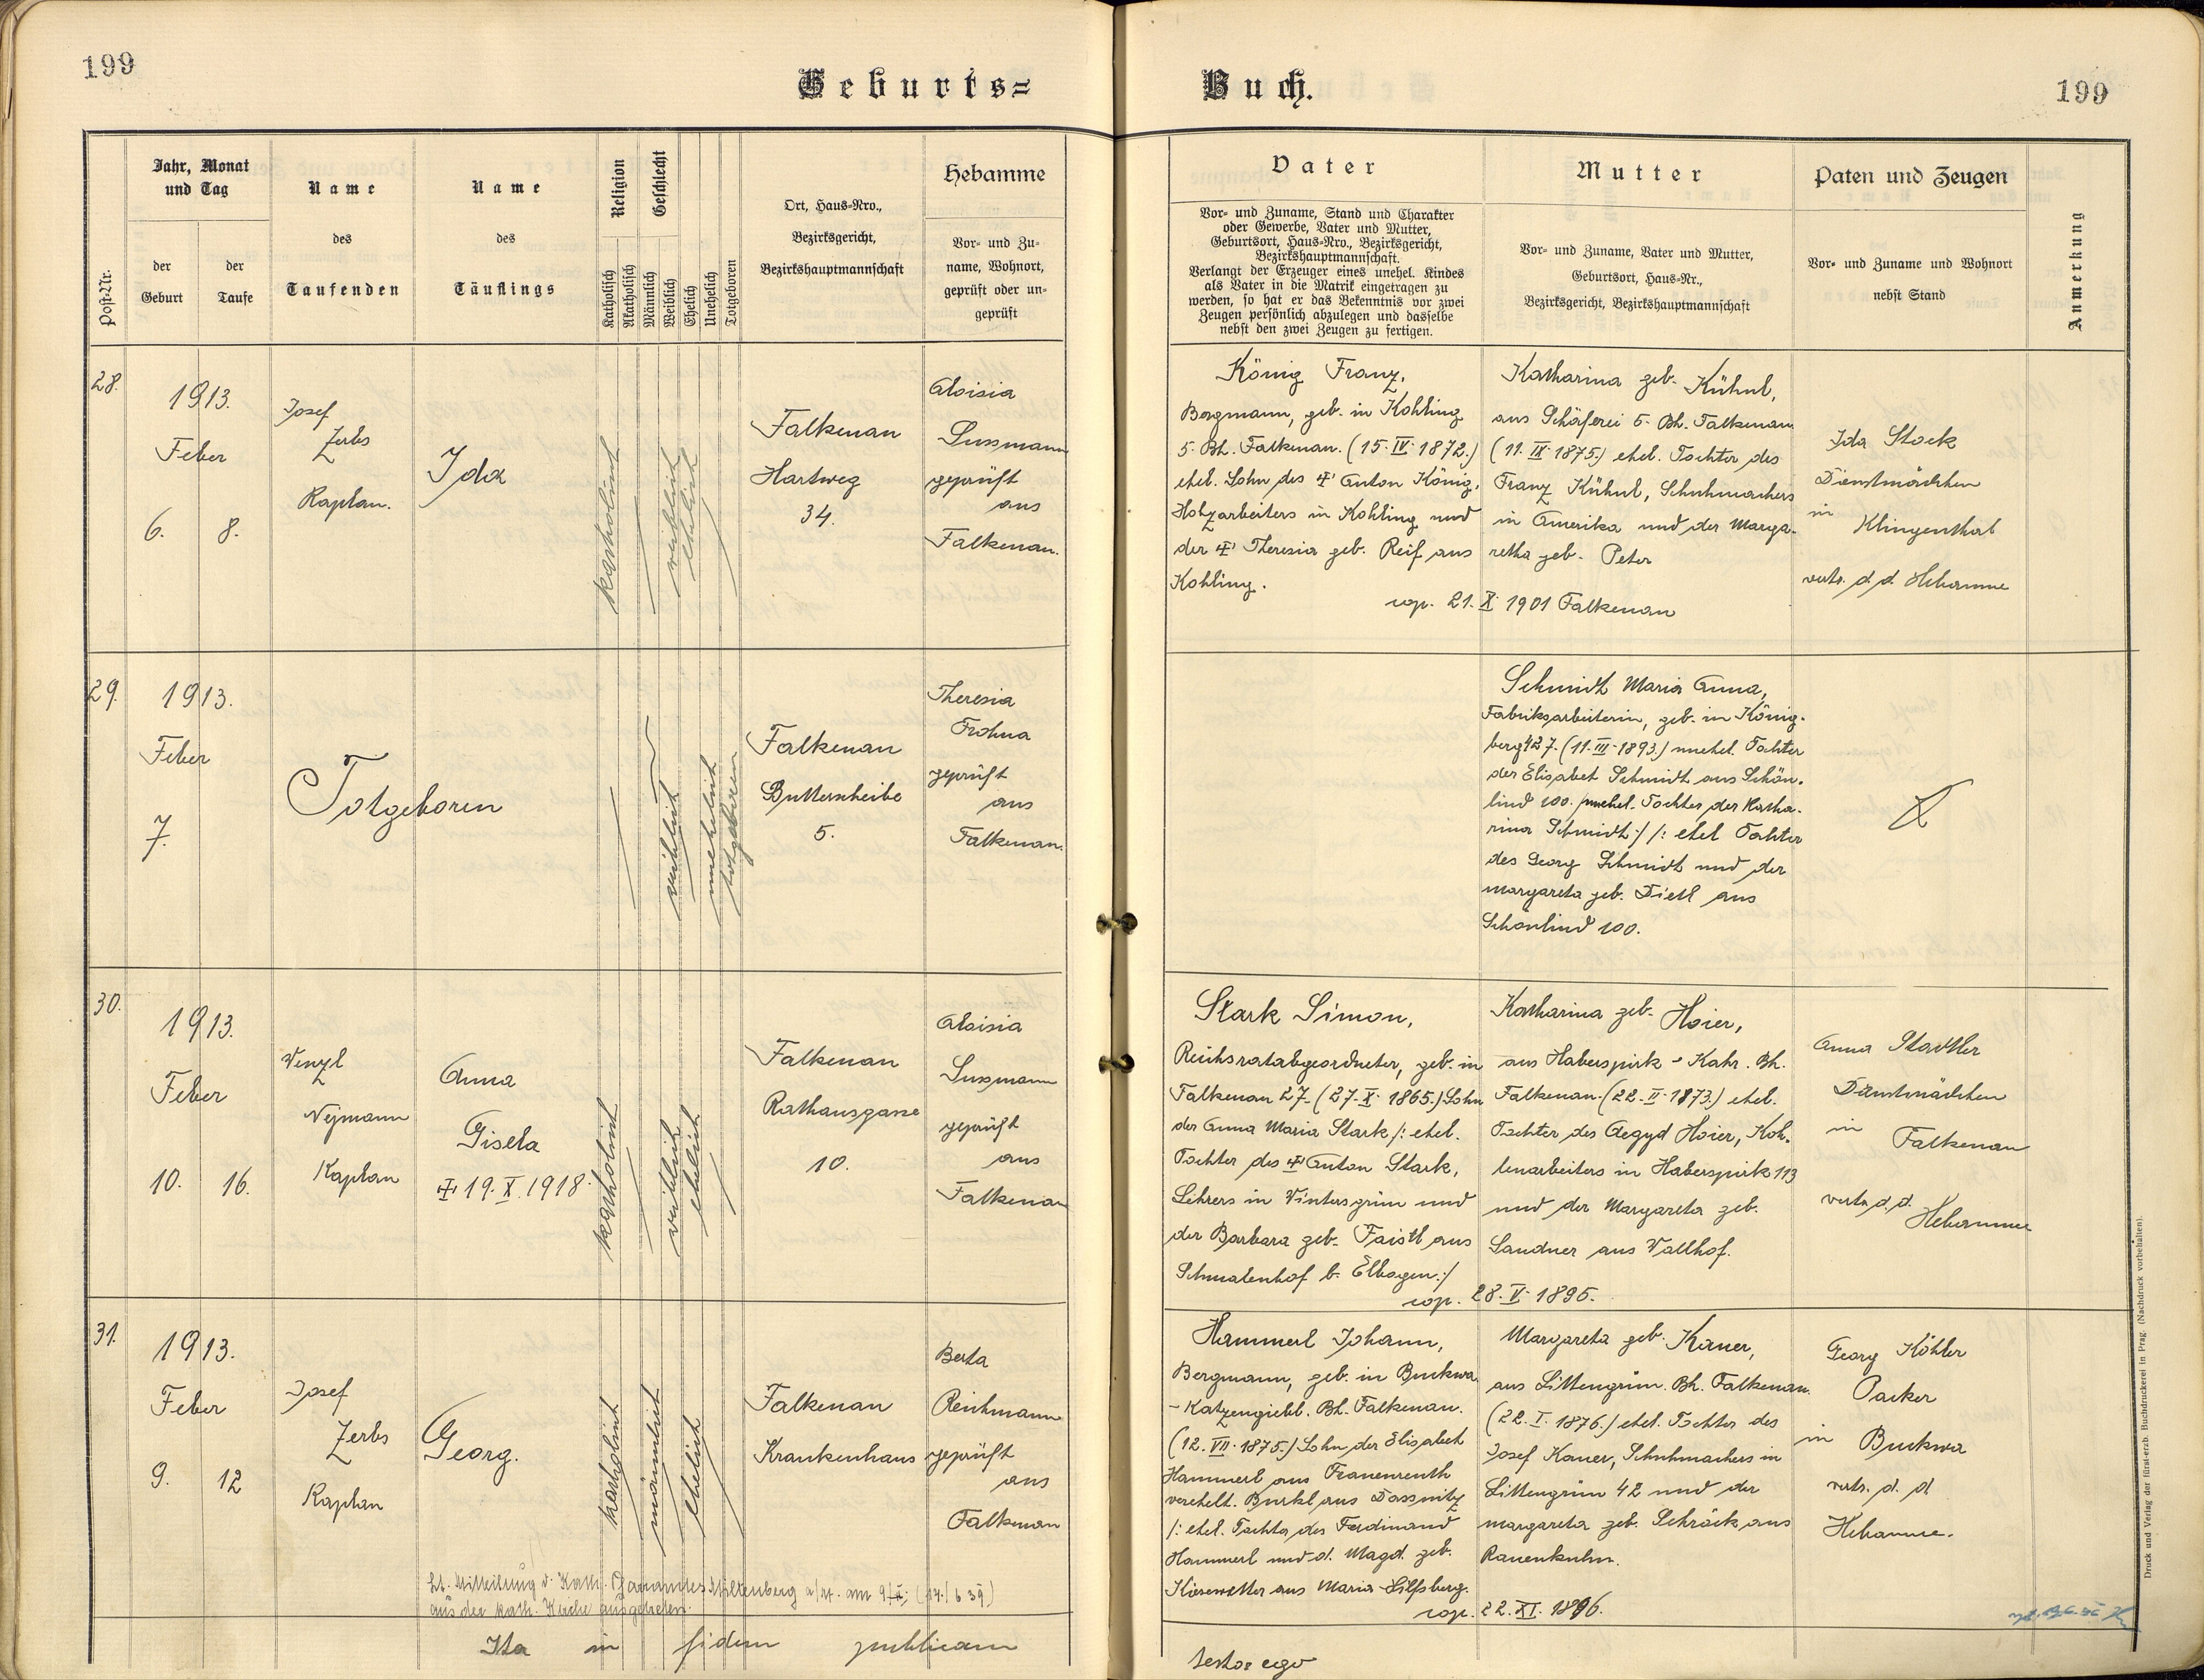 199
Geburts=
Buch.
199
Post-Nr.
Jahr, Monat
und Tag
der
Geburt
der
Taufe
Name
des
Taufenden
Name
des
Täuflings
Religion
Katholisch
Akatholisch
Geschlecht
Männlich
Weiblich
Ehelich
Unehelich
Totgeboren
Ort, Haus-Nro.,
Bezirksgericht,
Bezirkshauptmannschaft
Hebamme
Vor- und Zu-
name, Wohnort,
geprüft oder un-
geprüft
Vater
Vor- und Zuname, Stand und Charakter
oder Gewerbe, Vater und Mutter,
Geburtsort, Haus-Nro., Bezirksgericht,
Bezirkshauptmannschaft.
Verlangt der Erzeuger eines unehel. Kindes
als Vater in die Matrik eingetragen zu
werden, so hat er das Bekenntnis vor zwei
Zeugen persönlich abzulegen und dasselbe
nebst den zwei Zeugen zu fertigen.
Mutter
Vor- und Zuname, Vater und Mutter,
Geburtsort, Haus-Nr.,
Bezirksgericht, Bezirkshauptmannschaft
Paten und Zeugen
Vor- und Zuname und Wohnort
nebst Stand
Anmerkung
28.
1913.
Feber
6. 8.
Josef
Zerbs
Kaplan.
Ida
katholisch
weiblich
ehelich
Falkenau
Hartweg
34.
Aloisia
Sussmann
geprüft
aus
Falkenau.
König Franz,
Bergmann, geb. in Kohling
5. Bh. Falkenau. (15. IV. 1872.)
ehel. Sohn des ✠ Anton König,
Holzarbeiters in Kohling und
der ✠ Theresia geb. Reif aus
Kohling.
cop. 21. X. 1901 Falkenau
Katharina geb. Kühnl,
aus Schäferei 5. Bh. Falkenau
(11. IX. 1875.) ehel. Tochter des
Franz Kühnl, Schuhmachers
in Amerika und der Marga-
retha geb. Peter
Ida Stock
Dienstmädchen
in
Klingenthal
vertr. d. d. Hebamme
29.
1913.
Feber
7.
Totgeboren
weiblich
unehelich
totgeboren
Falkenau
Butterscheibe
5.
Theresia
Frohna
geprüft
aus
Falkenau.
Schmidt Maria Anna,
Fabriksarbeiterin, geb. in König-
berg 427. (11. III. 1893.) unehel. Tochter
der Elisabet Schmidt aus Schön-
lind 100. /unehel. Tochter der Katha-
rina Schmidt:/ /: ehel Tochter
des Georg Schmidt und der
Margareta geb. Dietl aus
Schönlind 100.
30.
1913.
Feber
10. 16.
Wenzl
Nejmann
Kaplan
Anna
Gisela
✠ 19. X. 1918.
katholisch
weiblich
ehelich
Falkenau
Rathausgasse
10.
Aloisia
Sussmann
geprüft
aus
Falkenau
Stark Simon,
Reichsratabgeordneter, geb. in
Falkenau 27. (27. X. 1865.) Sohn
der Anna Maria Stark /: ehel.
Tochter des ✠ Anton Stark,
Lehrers in Wintersgrün und
der Barbara geb. Faistl aus
Schmalenhof b. Elbogen:/
cop. 28. V. 1895.
Katharina geb. Hoier,
aus Haberspirk - Kahr. Bh.
Falkenau. (22. II. 1873.) ehel.
Tochter des Aegyd Hoier, Koh-
lenarbeiters in Haberspirk 113
und der Margareta geb.
Sandner aus Wallhof.
Anna Stadtler
Dienstmädchen
in
Falkenau
vertr. d. d.
Hebamme
31.
1913.
Feber
9. 12
Josef
Zerbs
Kaplan
Georg.
katholisch
männlich
ehelich
Falkenau
Krankenhaus
Berta
Reichmann
geprüft
aus
Falkenau
Hammerl Johann,
Bergmann, geb. in Buckwa
- Katzengiebl. Bh. Falkenau.
(12. VII. 1875.) Sohn der Elisabeth
Hammerl aus Frauenreuth
verehelt. Burkl aus Dassnitz
/: ehel. Tochter des Ferdinand
Hammerl und d. Magd. geb.
Kiesewetter aus Maria-Hilfsberg.
cop. 22. XI. 1896.
Margareta geb. Kauer,
aus Littengrün. Bh. Falkenau.
(22. I. 1876.) ehel. Tochter des
Josef Kauer, Schuhmachers in
Littengrün 42 und der
Margareta geb. Schröck aus
Rauenkulm.
Georg Köhler
Packer
in Buckwa
vertr. d. d.
Hebamme.
Lt. Mitteilung d. Kath. Pfarramtes Miltenberg a/M. am
aus der kath. Kirche ausgetreten.
Ita in fidem publicam
testor ego
Druck und Verlag der fürst-erzb. Buchdruckerei in Prag. (Nachdruck vorbehalten).